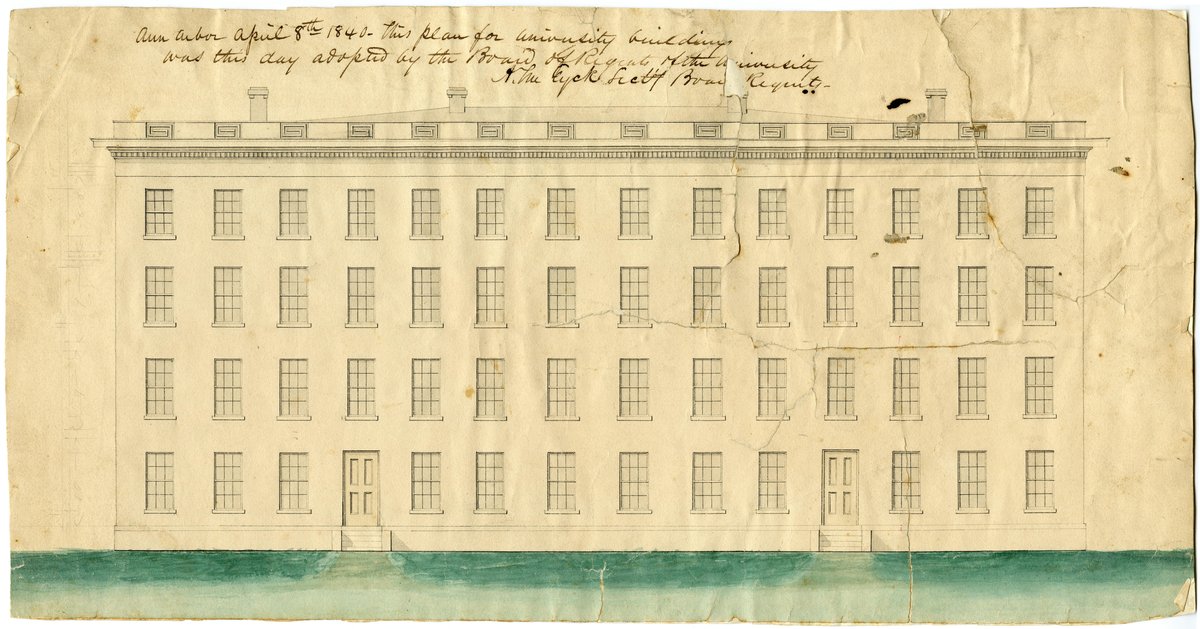 Ann Arbor April 8th 1840 - This plan for University buildings
was this day adopted by the Board of Regents of the University
A. Ten Eyck Secty Board Regents -